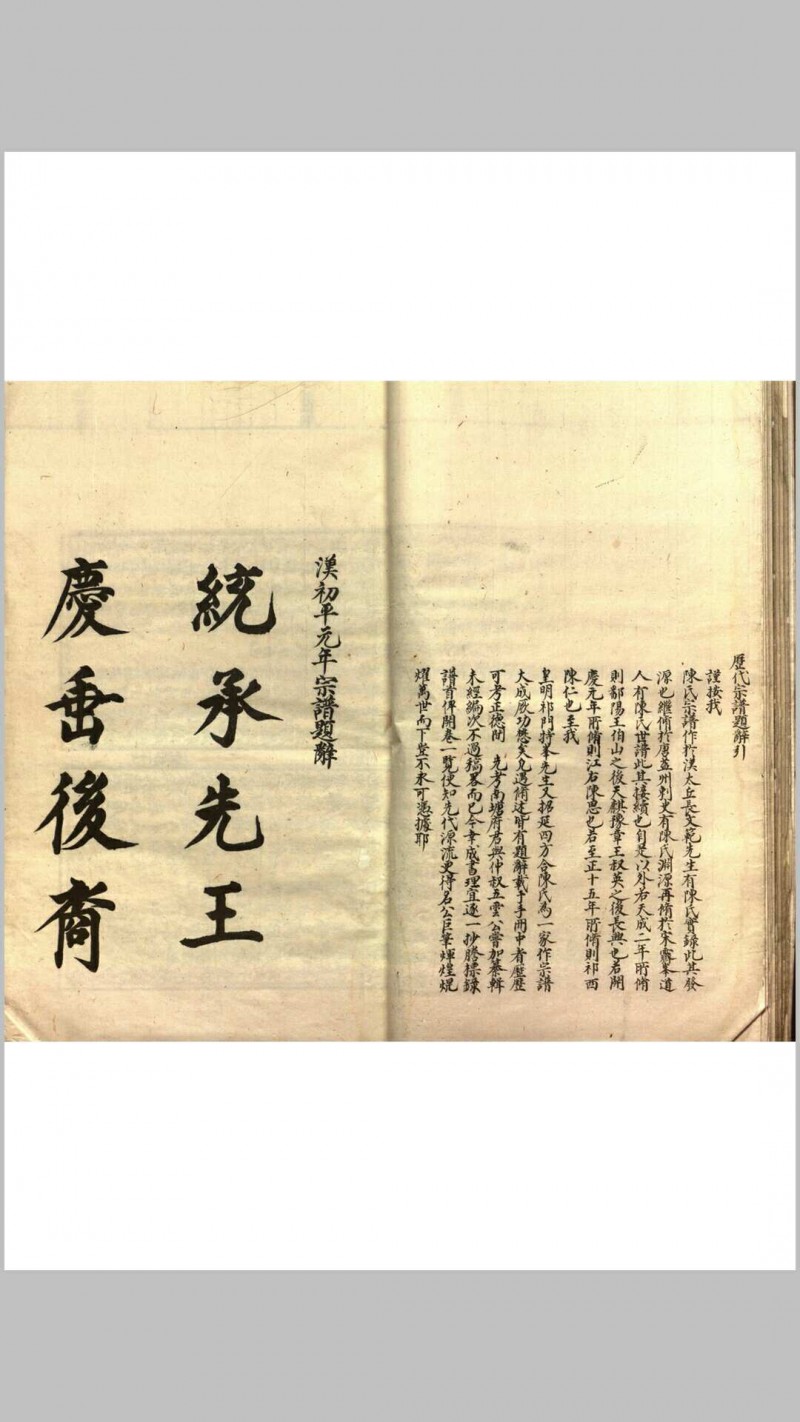 歷代宗譜題辭引
謹按我
陳氏宗譜作扵漢太丘長文範先生有陳氏實錄此其發
源也繼脩扵唐益州刺史有陳氏淵源再脩扵宋霽峯道
人有陳氏世譜此其接續也自是以外若天成二年所脩
則鄱陽王伯山之後天麒豫章王叔英之後長興也若開
慶元年所脩則江右陳思也若至正十五年所脩則祁西
陳仁也至我
皇明祁門捋峯先生又招延四方合陳氏為一家作宗譜
大成厥功懋矣凡遇脩述皆有題辭載于手冊中者歷歷
可考正德間 先考南塘府君與仲叔五雲公嘗加纂輯
未經編次不過稿畧而已今幸成書理宜逐一抄謄摽錄
譜首俾開卷一覽便知先代源流更得名公巨筆煇煌焜
燿萬世而下豈不永可憑據耶
漢初平元年宗譜題辭
統承先王
慶垂後裔